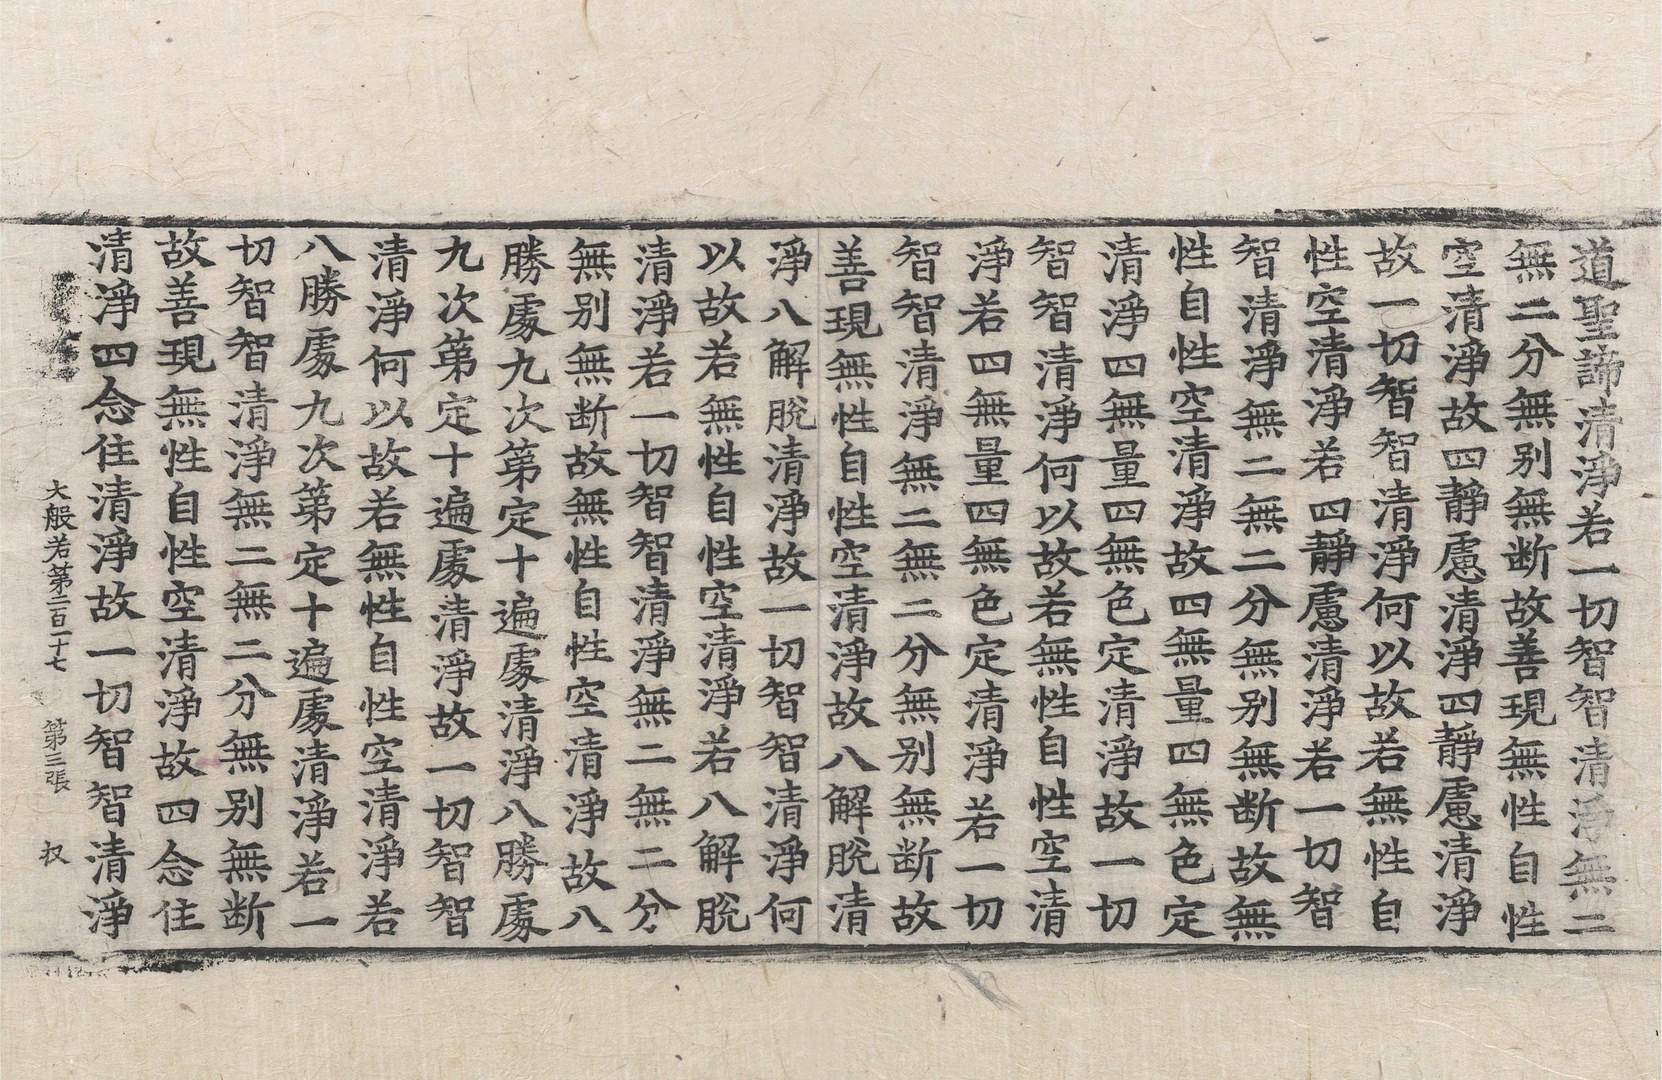 道聖諦清淨若一切智智清淨無二
無二分無別無断故善現無性自性
空清淨故四靜慮清淨四靜慮清淨
故一切智智清淨何以故若無性自
性空清淨若四靜慮清淨若一切智
智清淨無二無二分無別無断故無
性自性空清淨故四無量四無色定
清淨四無量四無色定清淨故一切
智智清淨何以故若無性自性空清
淨若四無量四無色定清淨若一切
智智清淨無二無二分無別無断故
善現無性自性空清淨故八解脫清
淨八解脫清淨故一切智智清淨何
以故若無性自性空清淨若八解脫
清淨若一切智智清淨無二無二分
無別無断故無性自性空清淨故八
勝處九次第定十遍處清淨八勝處
九次第定十遍處清淨故一切智智
清淨何以故若無性自性空清淨若
八勝處九次第定十遍處清淨若一
切智智清淨無二無二分無別無断
故善現無性自性空清淨故四念住
清淨四念住清淨故一切智智清淨
大般若第二百一十七 第三張 㧅